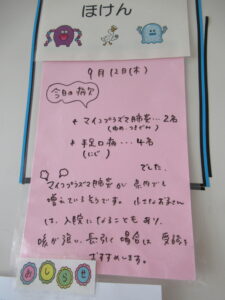 ほけん
9月12日(木)
今日の病欠
* マイコプラズマ肺炎…2名
(ゆめ・つきぐみ)
* 手足口病…4名
(にじ)
でした。
マイコプラズマ肺炎が 市内でも
増えているそうです。小さなお子さん
は、入院になることもあり、
咳が強い、長引く場合は 受診を
おすすめします。
おしらせ